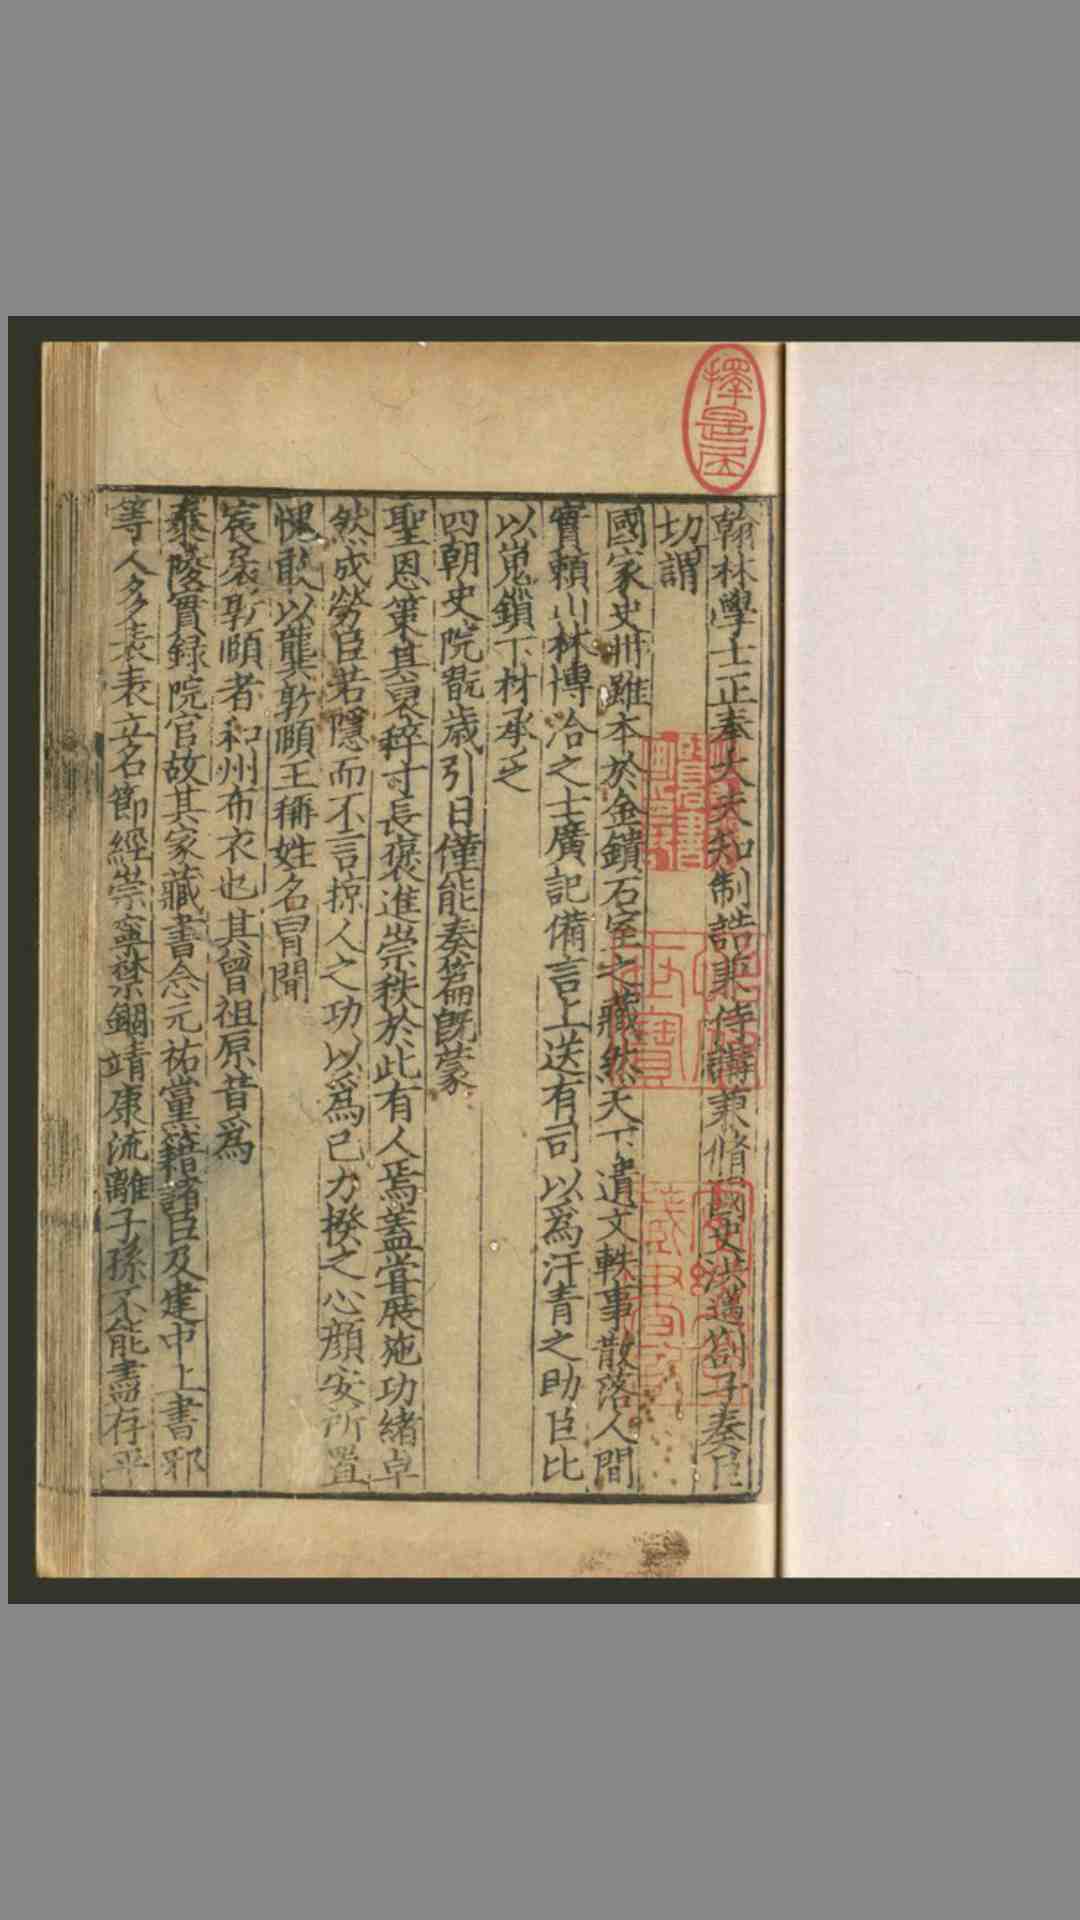 翰林學士正奉大夫知制誥兼侍講兼脩國史洪邁劄子奏臣
切謂
國家史冊雖本於金鐀石室之藏然天下遺文軼事散落人間
實賴山林博洽之士廣記備言上送有司以為汗青之助臣比
以嵬鎖下材承乏
四朝史院翫歲引日僅能奏篇旣蒙
聖恩策其㒵稡寸長褒進崇秩於此有人焉蓋嘗展施功緒卓
然成勞臣若隱而不言掠人之功以為己力揆之心顔安所置
愧敢以龔敦頤王稱姓名冒聞
宸扆敦頤者和州布衣也其曾祖原昔為
泰陵實録院官故其家藏書念元祐黨籍諸臣及建中上書邪
等人多表表立名節經崇寧禁錮靖康流離子孫不能盡存乎
擇是居